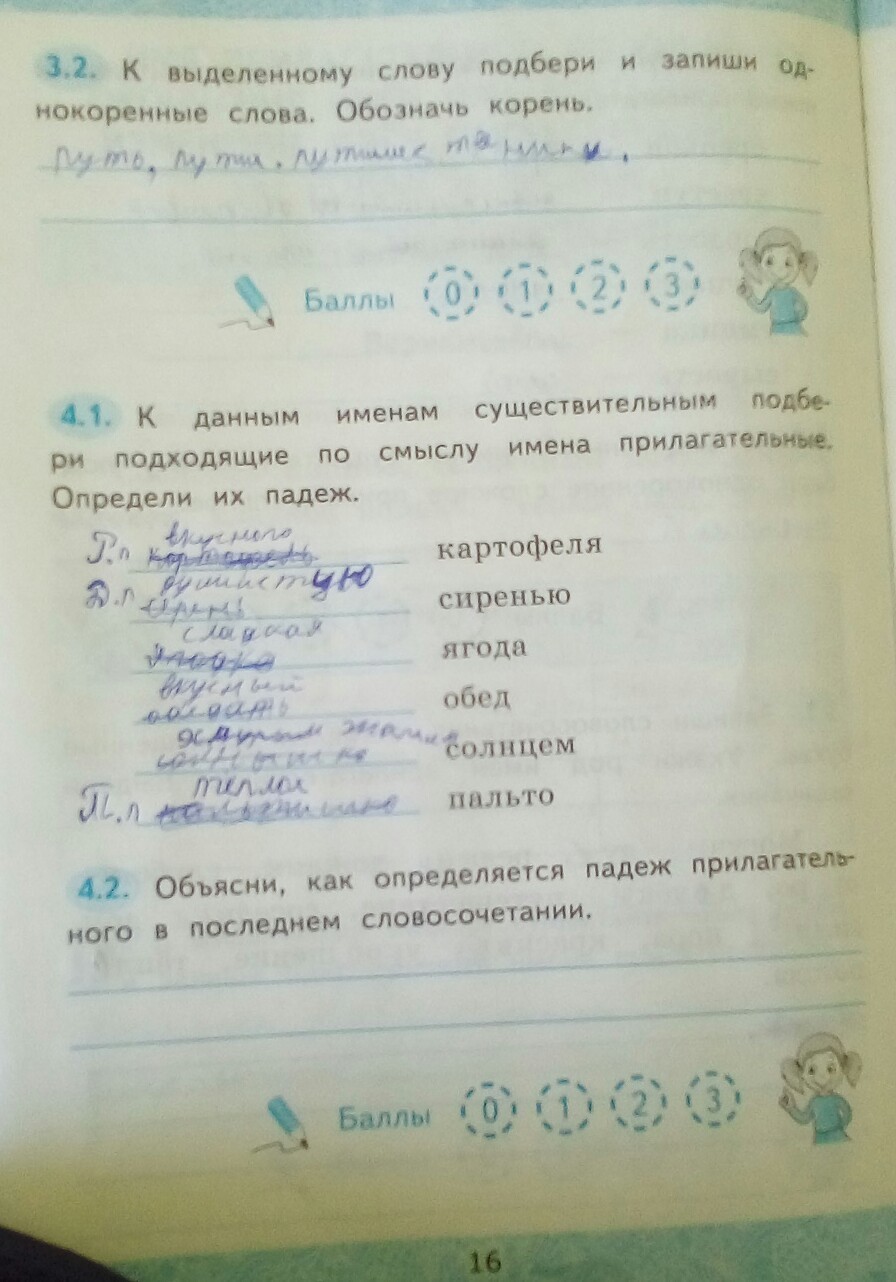 3.2. К выделенному слову подбери и запиши од-
нокоренные слова. Обозначь корень.
Путь, пути,
Баллы 0 1 2 3
4.1. К данным именам существительным подбе-
ри подходящие по смыслу имена прилагательные.
Определи их падеж.
вкусного
Р.п картофель картофеля
душистую
Д.п сирень сиренью
сладкая
ягода
вкусный
обед
солнышко солнцем
тепло
П.п пальто
4.2. Объясни, как определяется падеж прилагатель-
ного в последнем словосочетании.
Баллы 0 1 2 3
16